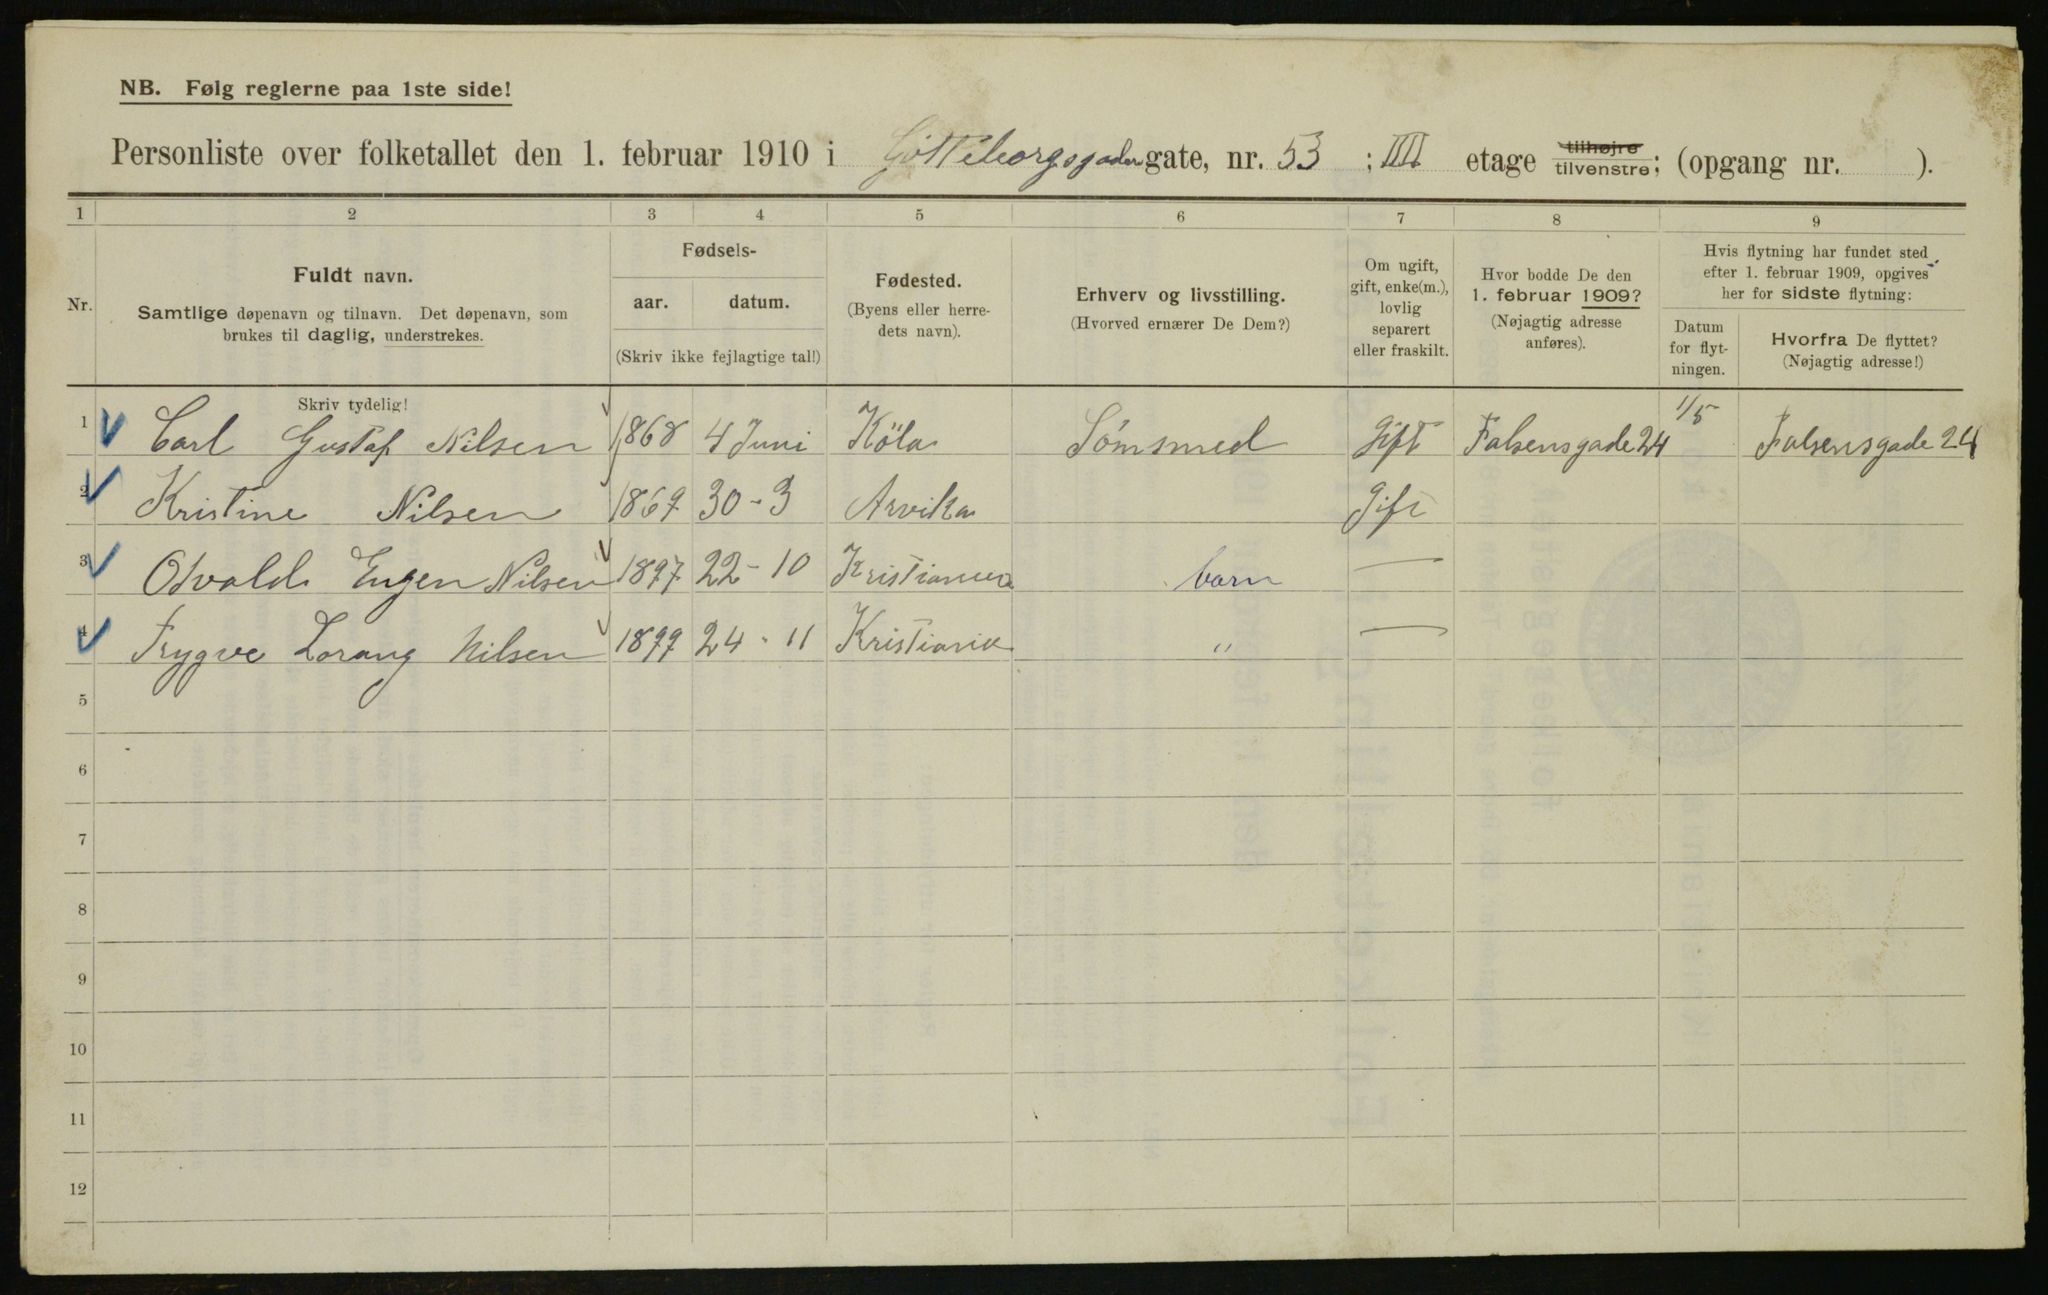 NB. Følg reglerne paa 1ste side!
Personliste over folketallet den 1. februar 1910 i Gøtteborgsgaden gate, nr. 53 ; III etage tilhøjre tilvenstre; (opgang nr. ).
1 2 3 4 5 6 7 8 9
Nr.
Fuldt navn.
Samtlige døpenavn og tilnavn. Det døpenavn, som
brukes til daglig, understrekes.
Skriv tydelig!
Fødsels-
aar. datum.
(Skriv ikke fejlagtige tal!)
Fødested.
(Byens eller herre-
dets navn).
Erhverv og livsstilling.
(Hvorved ernærer De Dem?)
Om ugift,
gift, enke(m.),
lovlig
separert
eller fraskilt.
Hvor bodde De den
1. februar 1909?
(Nøjagtig adresse
anføres).
Hvis flytning har fundet sted
efter 1. februar 1909, opgives
her for sidste flytning:
Datum
for flyt-
ningen.
Hvorfra De flyttet?
(Nøjagtig adresse!)
1 Carl Gustaf Nilsen 1868 4 Juni Köla Sømsmed Gift Falsensgade 24 1/5 Falsensgade 24
2 Kristine Nilsen 1869 30-3 Arvika Gift
3 Osvald Eugen Nilsen 1897 22-10 Kristiania barn —
4 Trygve Lorang Nilsen 1899 24-11 Kristiania " —
5
6
7
8
9
10
11
12